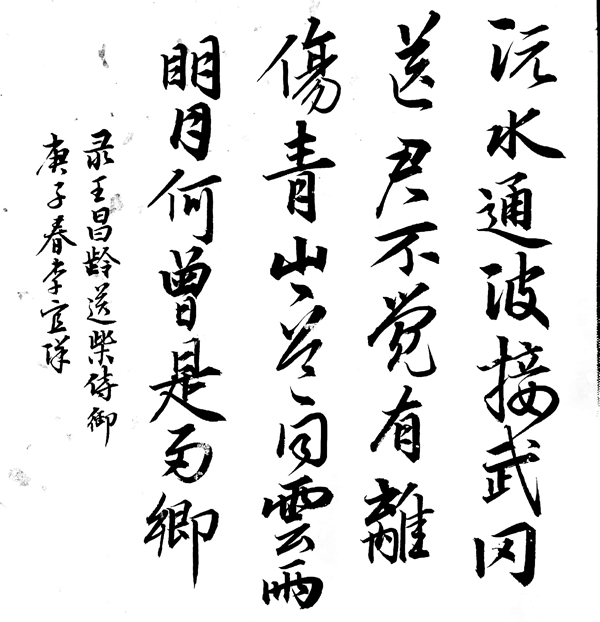 沅水通波接武冈
送君不觉有離
傷青山一道同雲雨
明月何曾是两卿
录王昌龄送柴侍御
庚子春李宜洋